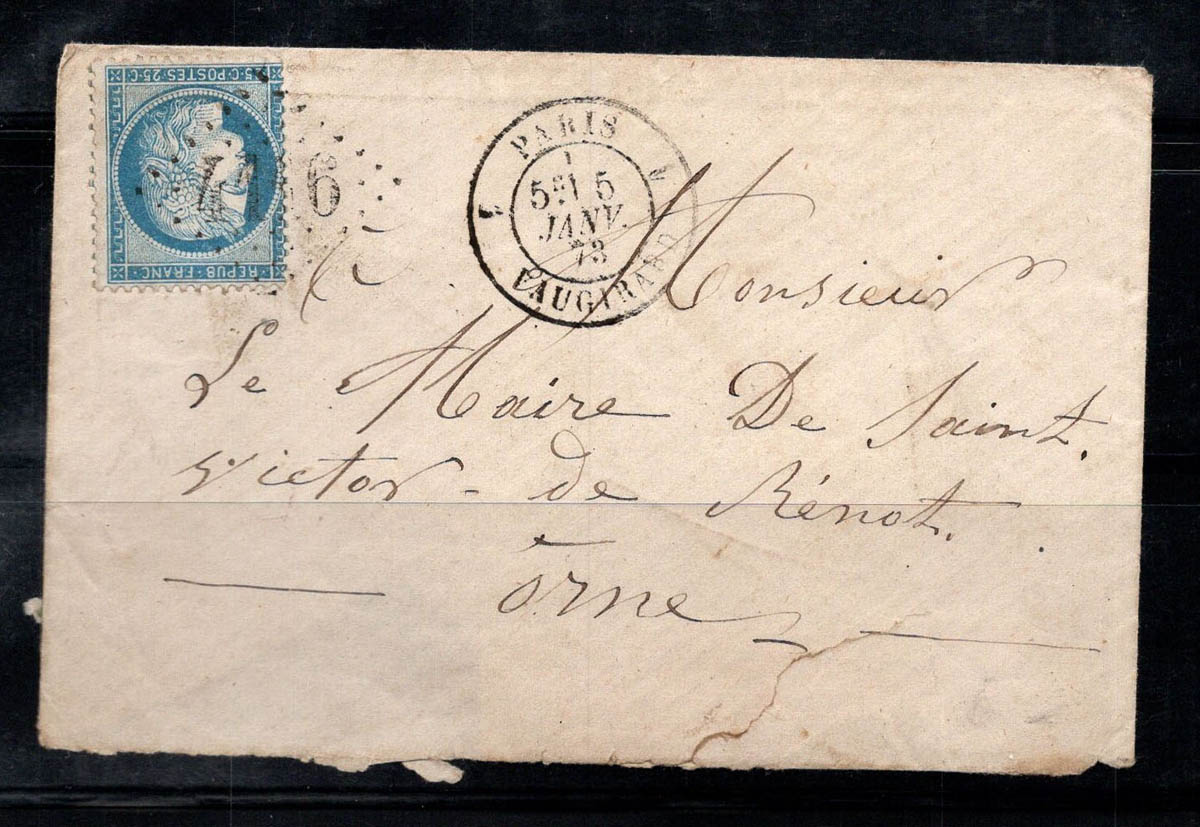 25·C·POSTES·25·C
REPUB·FRANC·
PARIS
5E 5
JANV.
73
VAUGIRARD
Monsieur
Le Maire De Saint.
Victor - de Rénot.
Orne